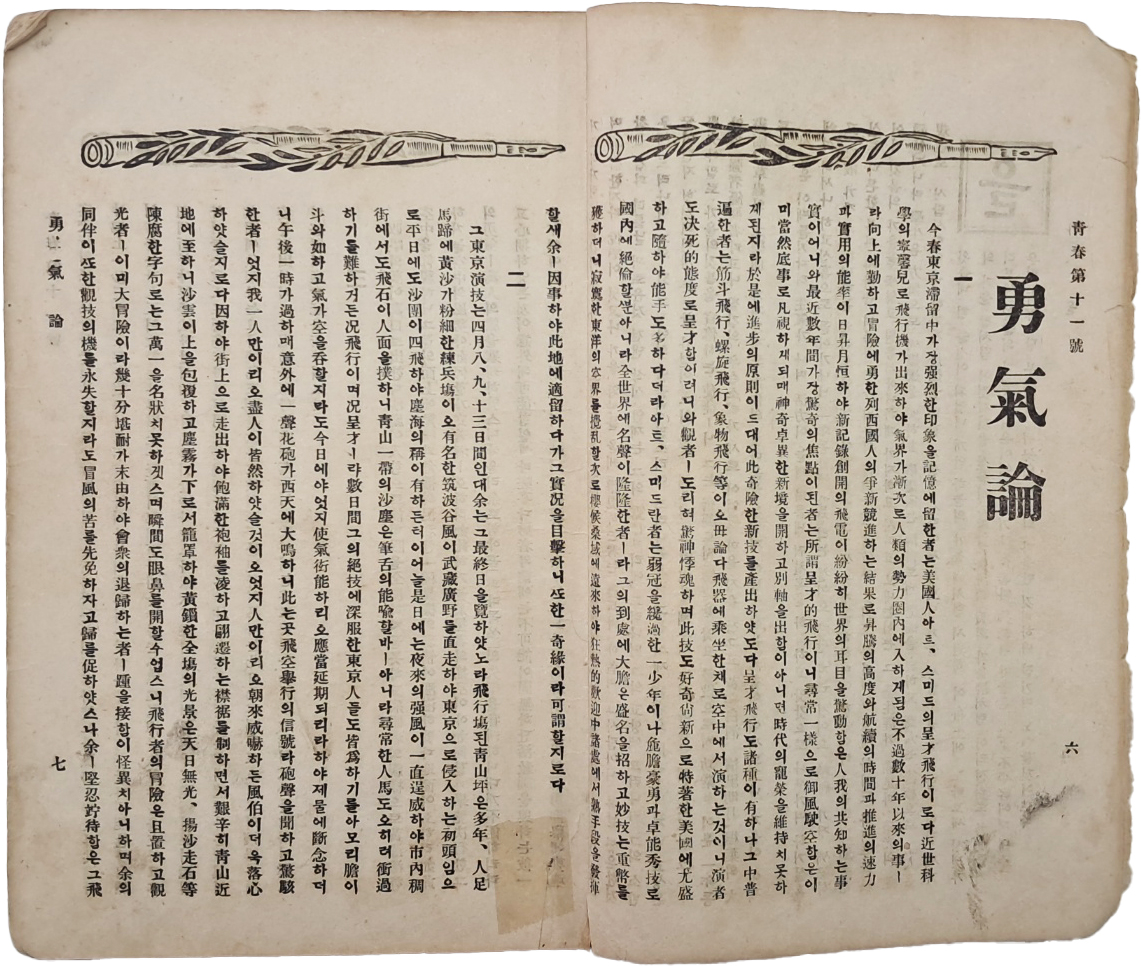 靑春第十一號
勇氣論
一
今春東京滯留中가장强烈한印象을記憶에留한者는美國人아트、스미드의呈才飛行이로다近世科
學의寧馨兒로飛行機가出來하야氣界가漸次로人類의勢力圈內에入하게됨은不過數十年以來의事ㅣ
라向上에勤하고冒險에勇한列西國人의爭新競進하는結果로昇騰의高度와航續의時間과推進의速力
과實用의能率이日昇月恒하야新記錄創開의飛電이紛紛히世界의耳目을驚動함은人我의共知하는事
實이어니와最近數年間가장驚奇의焦點이된者는所謂呈才的飛行이니尋常一樣으로御風駛空함은이
미當然底事로凡視하게되매神奇卓異한新境을開하고別軸을出함이아니면時代의寵榮을維持치못하
게된지라於是에進步의原則이드대어此奇險한新技를產出하얏도다呈才飛行도諸種이有하나그中普
遍한者는筋斗飛行、螺旋飛行、象物飛行等이오毋論다飛器에乘坐한채로空中에서演하는것이니演者
도決死的態度로呈才함이려니와觀者ㅣ도리혀驚神悸魂하며此技도好奇尙新으로特著한美國에尤盛
하고隨하야能手도多하다더라아트、스미드란者는弱冠을纔過한一少年이나麁膽豪勇과卓能秀技로
國內에絕倫할뿐아니라全世界에名聲이隆隆한者ㅣ라그의到處에大膽은盛名을招하고妙技는重幣를
獲하더니寂寞한東洋의空界를攪乱할次로櫻候桑域에遠來하야狂熱的歡迎中諸處에서熟手段을發揮
六
할새余ㅣ因事하야此地에適留하다가그實况을目擊하니ᄯᅩ한一奇緣이라可謂할지로다
二
그東京演技는四月八、九、十三日間인대余는그最終日을覽하얏노라飛行塲된靑山坪은多年、人足
馬歸에黃沙가粉細한練兵塲이오有名한筑波谷風이武藏廣野를直走하야東京으로侵入하는初頭임으
로平日에도沙團이四飛하야塵海의稱이有하든터이어늘是日에는夜來의强風이一直逞威하야市內稠
街에서도飛石이人面을撲하니靑山一帶의沙塵은筆舌의能喩할바ㅣ아니라尋常한人馬도오히려衝過
하기를難하거든况飛行이며况呈才ㅣ랴數日間그의絕技에深服한東京人들도皆爲하기를아모리膽이
斗와如하고氣가空을吞할지라도今日에야엇지使氣衒能하리오應當延期되리라하야제물에斷念하더
니午後一時가過하매意外에一聲花砲가西天에大鳴하니此는곳飛空擧行의信號라砲聲을聞하고驚駭
한者ㅣ엇지我一人만이리오盡人이皆然하얏슬것이오엇지人만이리오朝來威嚇하든風伯이더욱落心
하얏슬지로다因하야街上으로走出하야飽滿한袍袖를凌하고翩遷하는襟裾를制하면서艱辛히靑山近
地에至하니沙雲이上을包覆하고塵霧가下로서籠罩하야黃鎻한全塲의光景은天日無光、揚沙走石等
陳腐한字句로는그萬一을名狀치못하겟스며瞬間도眼鼻를開할수업스니飛行者의冒險은且置하고觀
光者ㅣ이미大冒險이라幾十分堪耐가末由하야會衆의退歸하는者ㅣ踵을接함이怪異치아니하며余의
同伴이ᄯᅩ한觀技의機를永失할지라도冒風의苦를先免하자고歸를促하얏스나余ㅣ堅忍竚待함은그飛
勇氣論
七